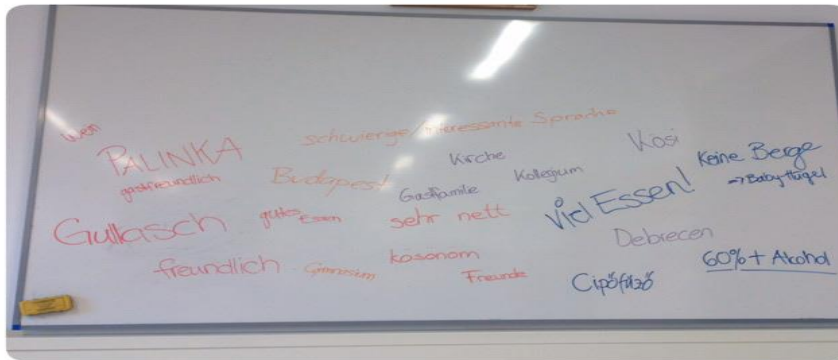 Wein
PALINKA
gastfreundlich
schwierige/interessante Sprache
Budapest
Kirche
Gastfamilie
Kollegium
Kösi
Keine Berge
→ Babyhügel
Gullasch
gutes
Essen
sehr nett
Viel Essen!
Debrecen
freundlich
Gymnasium
kösönöm
Freunde
Cipőfűző
60% + Alkohol